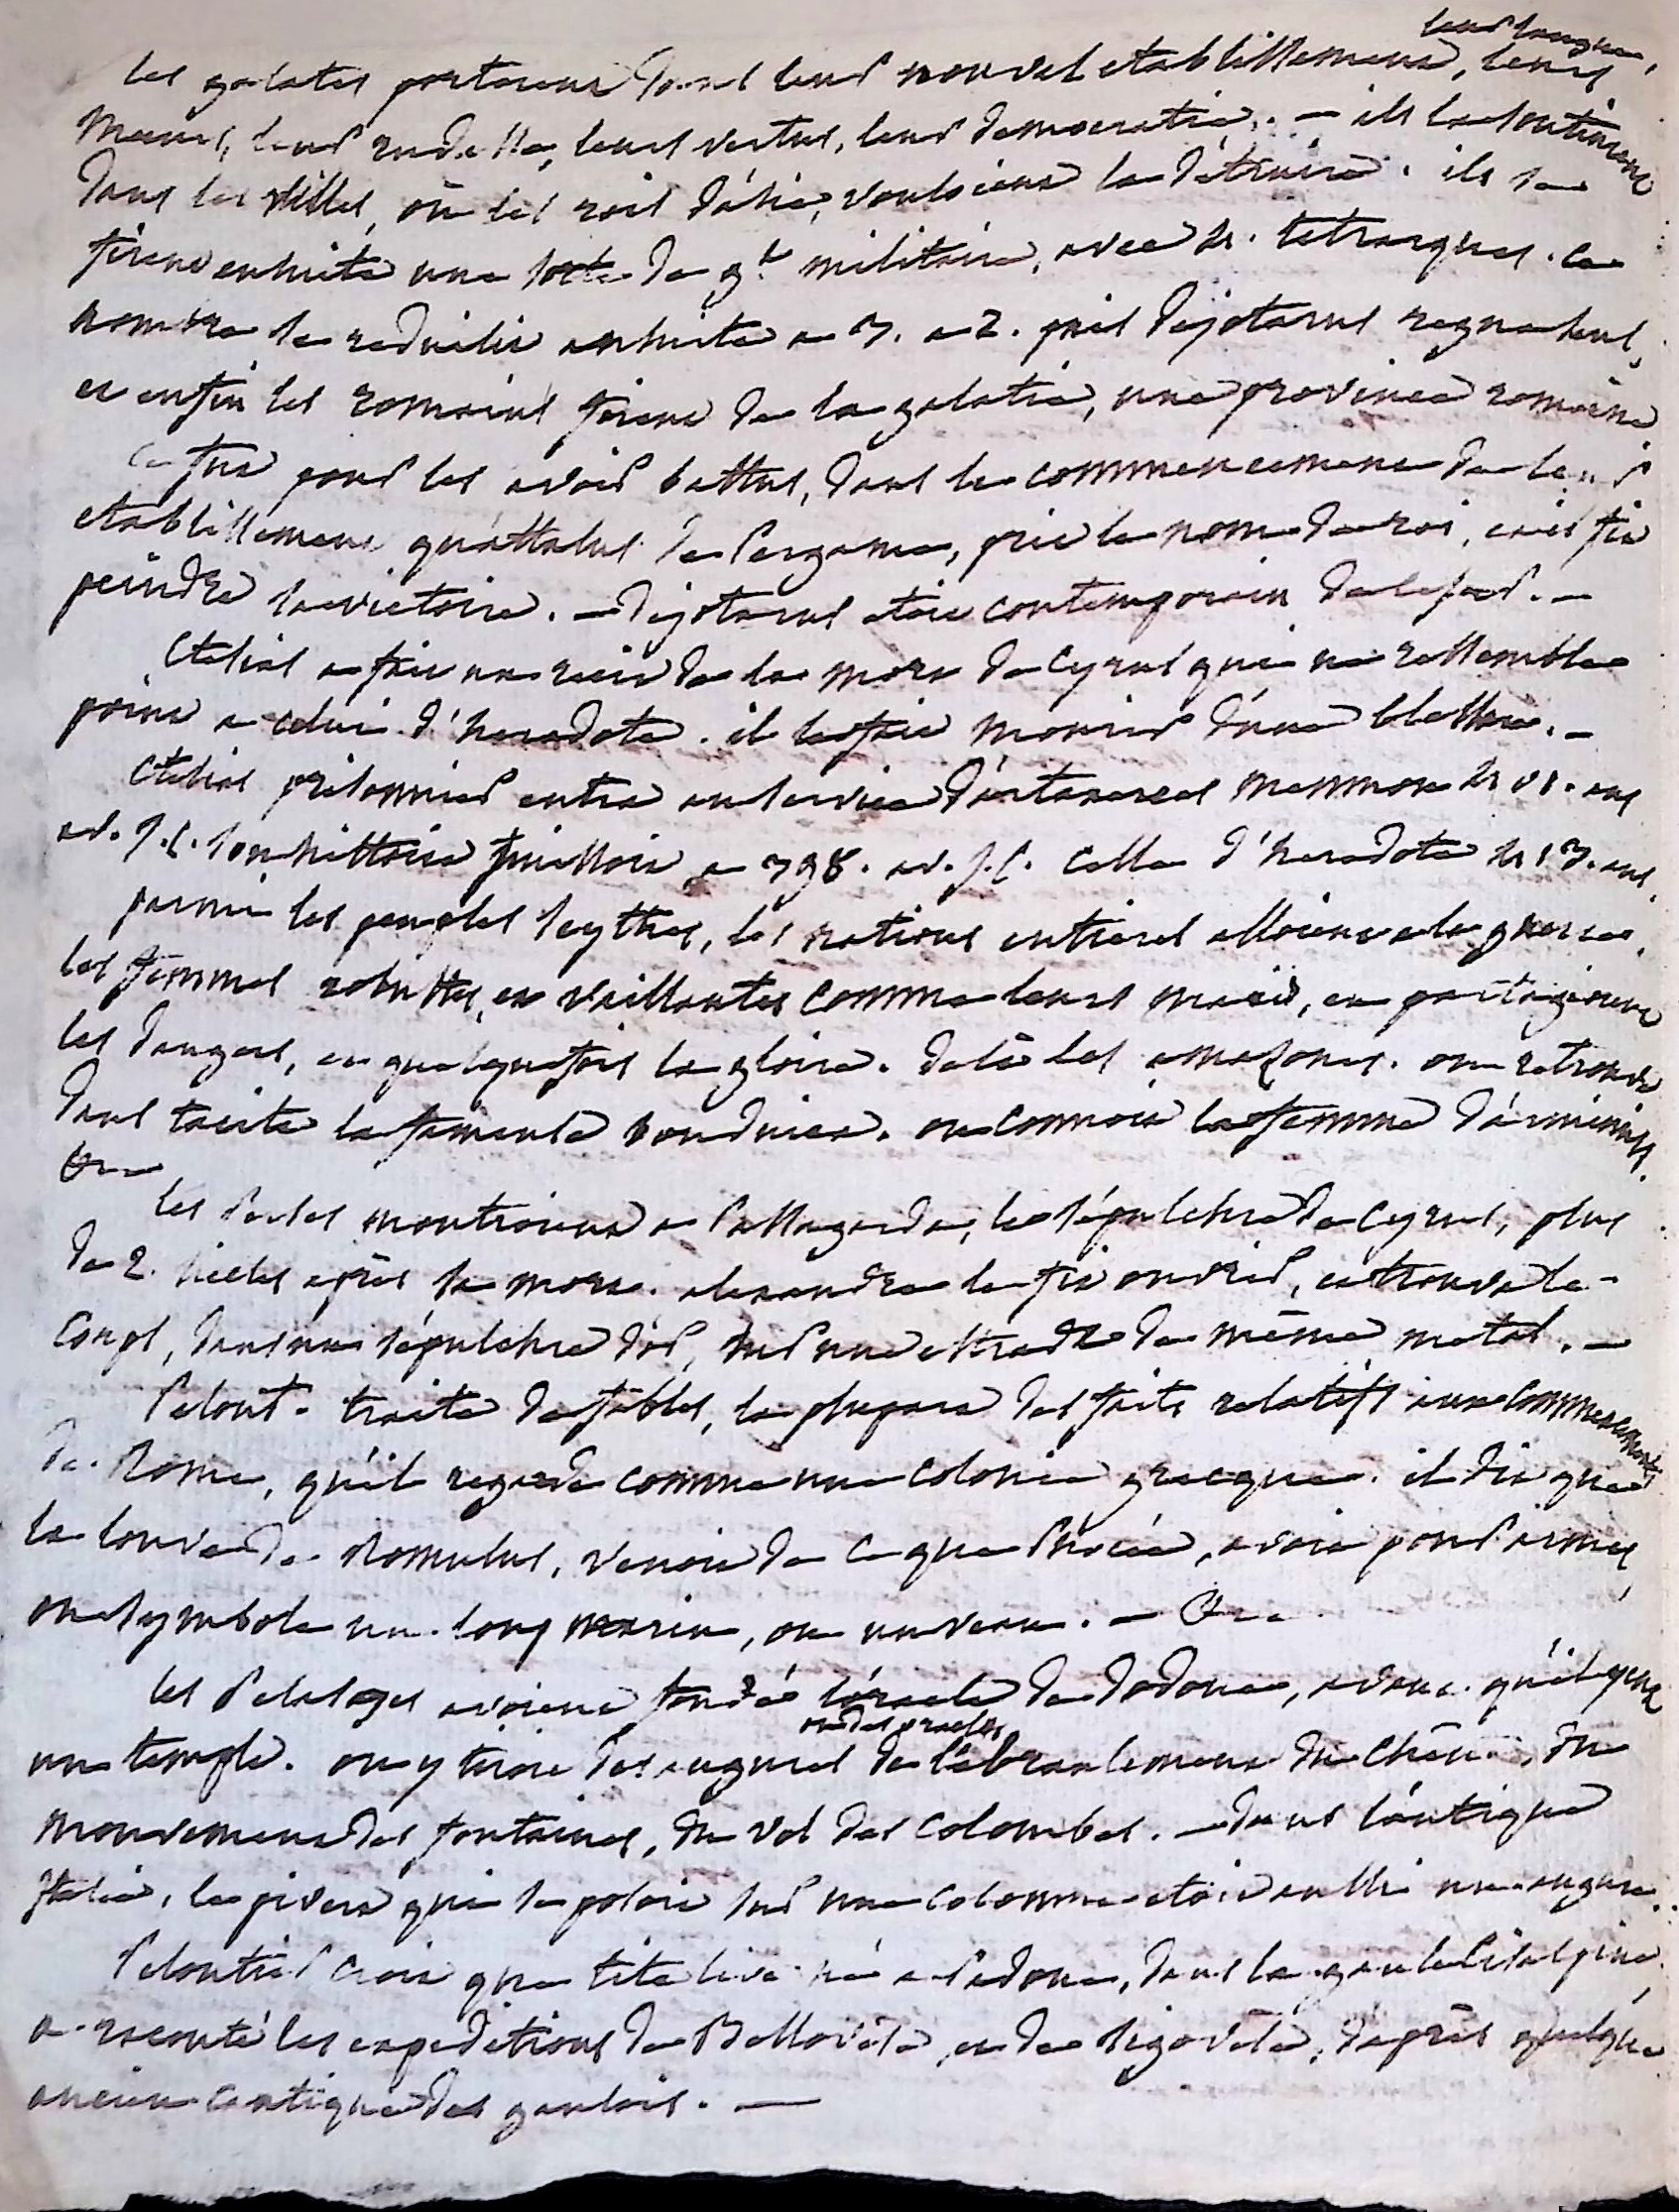 leur langue,
les galates porterent dans leur nouvel etablissement, leurs
moeurs, leur rudesse, leurs vertus, leur democratie. – ils la soutinrent
dans les villes, où les rois d'asie, vouloient la détruire. ils se
firent ensuite une sorte de gt militaire, avec 12. tetrarques. ce
nombre se reduisit ensuite a 3. a 2. puis dejotarus regna seul,
et enfin les romains firent de la galatie, une province romaine
ce fut pour les avoir battus, dans le commencement de leur
etablissement qu'attalus de Pergame, prit le nom de roi, et il fit
peindre sa victoire. – dejotarus etoit contemporain de cesar. –
Ctesias a fait un recit de la mort de Cyrus qui ne ressemble
point a celui d'herodote. il le fait mourir d'une blessure. –
Ctesias prisonnier entra au service d'artaxerces mnemon 401. ans
av. J.C. son histoire finissoit a 398. av. J.C. celle d'herodote 413. ans.
parmi les peuples scythes, les nations entieres alloient a la guerre.
les femmes robustes, et vaillantes comme leurs maris, en partageoient
les dangers, et quelquefois la gloire. delà les amazones. on retrouve
dans tacite la fameuse boudicea. on connoit la femme d'arminius.
&c.
les Perses montroient a Passagarde, le sépulchre de Cyrus, plus
de 2. siecles après sa mort. alexandre le fit ouvrir, et trouva le
corps, dans un sépulchre d'or, sur une estrade de même metal. –
Pelout. traite de fables, la plupart des faits relatifs aux commencements
de Rome, qu'il regarde comme une colonie grecque. il dit que
la louve de Romulus, venoit de ce que Phocée, avoit pour armes,
ou symbole un loup marin, ou un veau. – &c.
les Pelasges avoient fondé l'oracle de dodone, avant qu'il y eut
ou des oracles
un temple. on y tiroit des augures de l'ebranlement du chêne, du
mouvement des fontaines, du vol des colombes. – dans l'antique
Italie, le pivert qui se posoit sur une colonne etoit aussi un augure.
Peloutier croit que tite live né a Padoue, dans la gaule Cisalpine,
a raconté les expeditions de Bellovèse, et de Sigovèse, d'après quelque
ancien cantique des gaulois. –